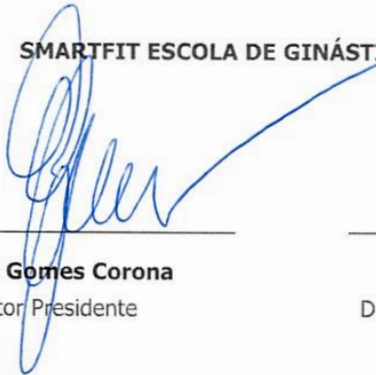 SMARTFIT ESCOLA DE GINÁST
Gomes Corona
tor Presidente
D